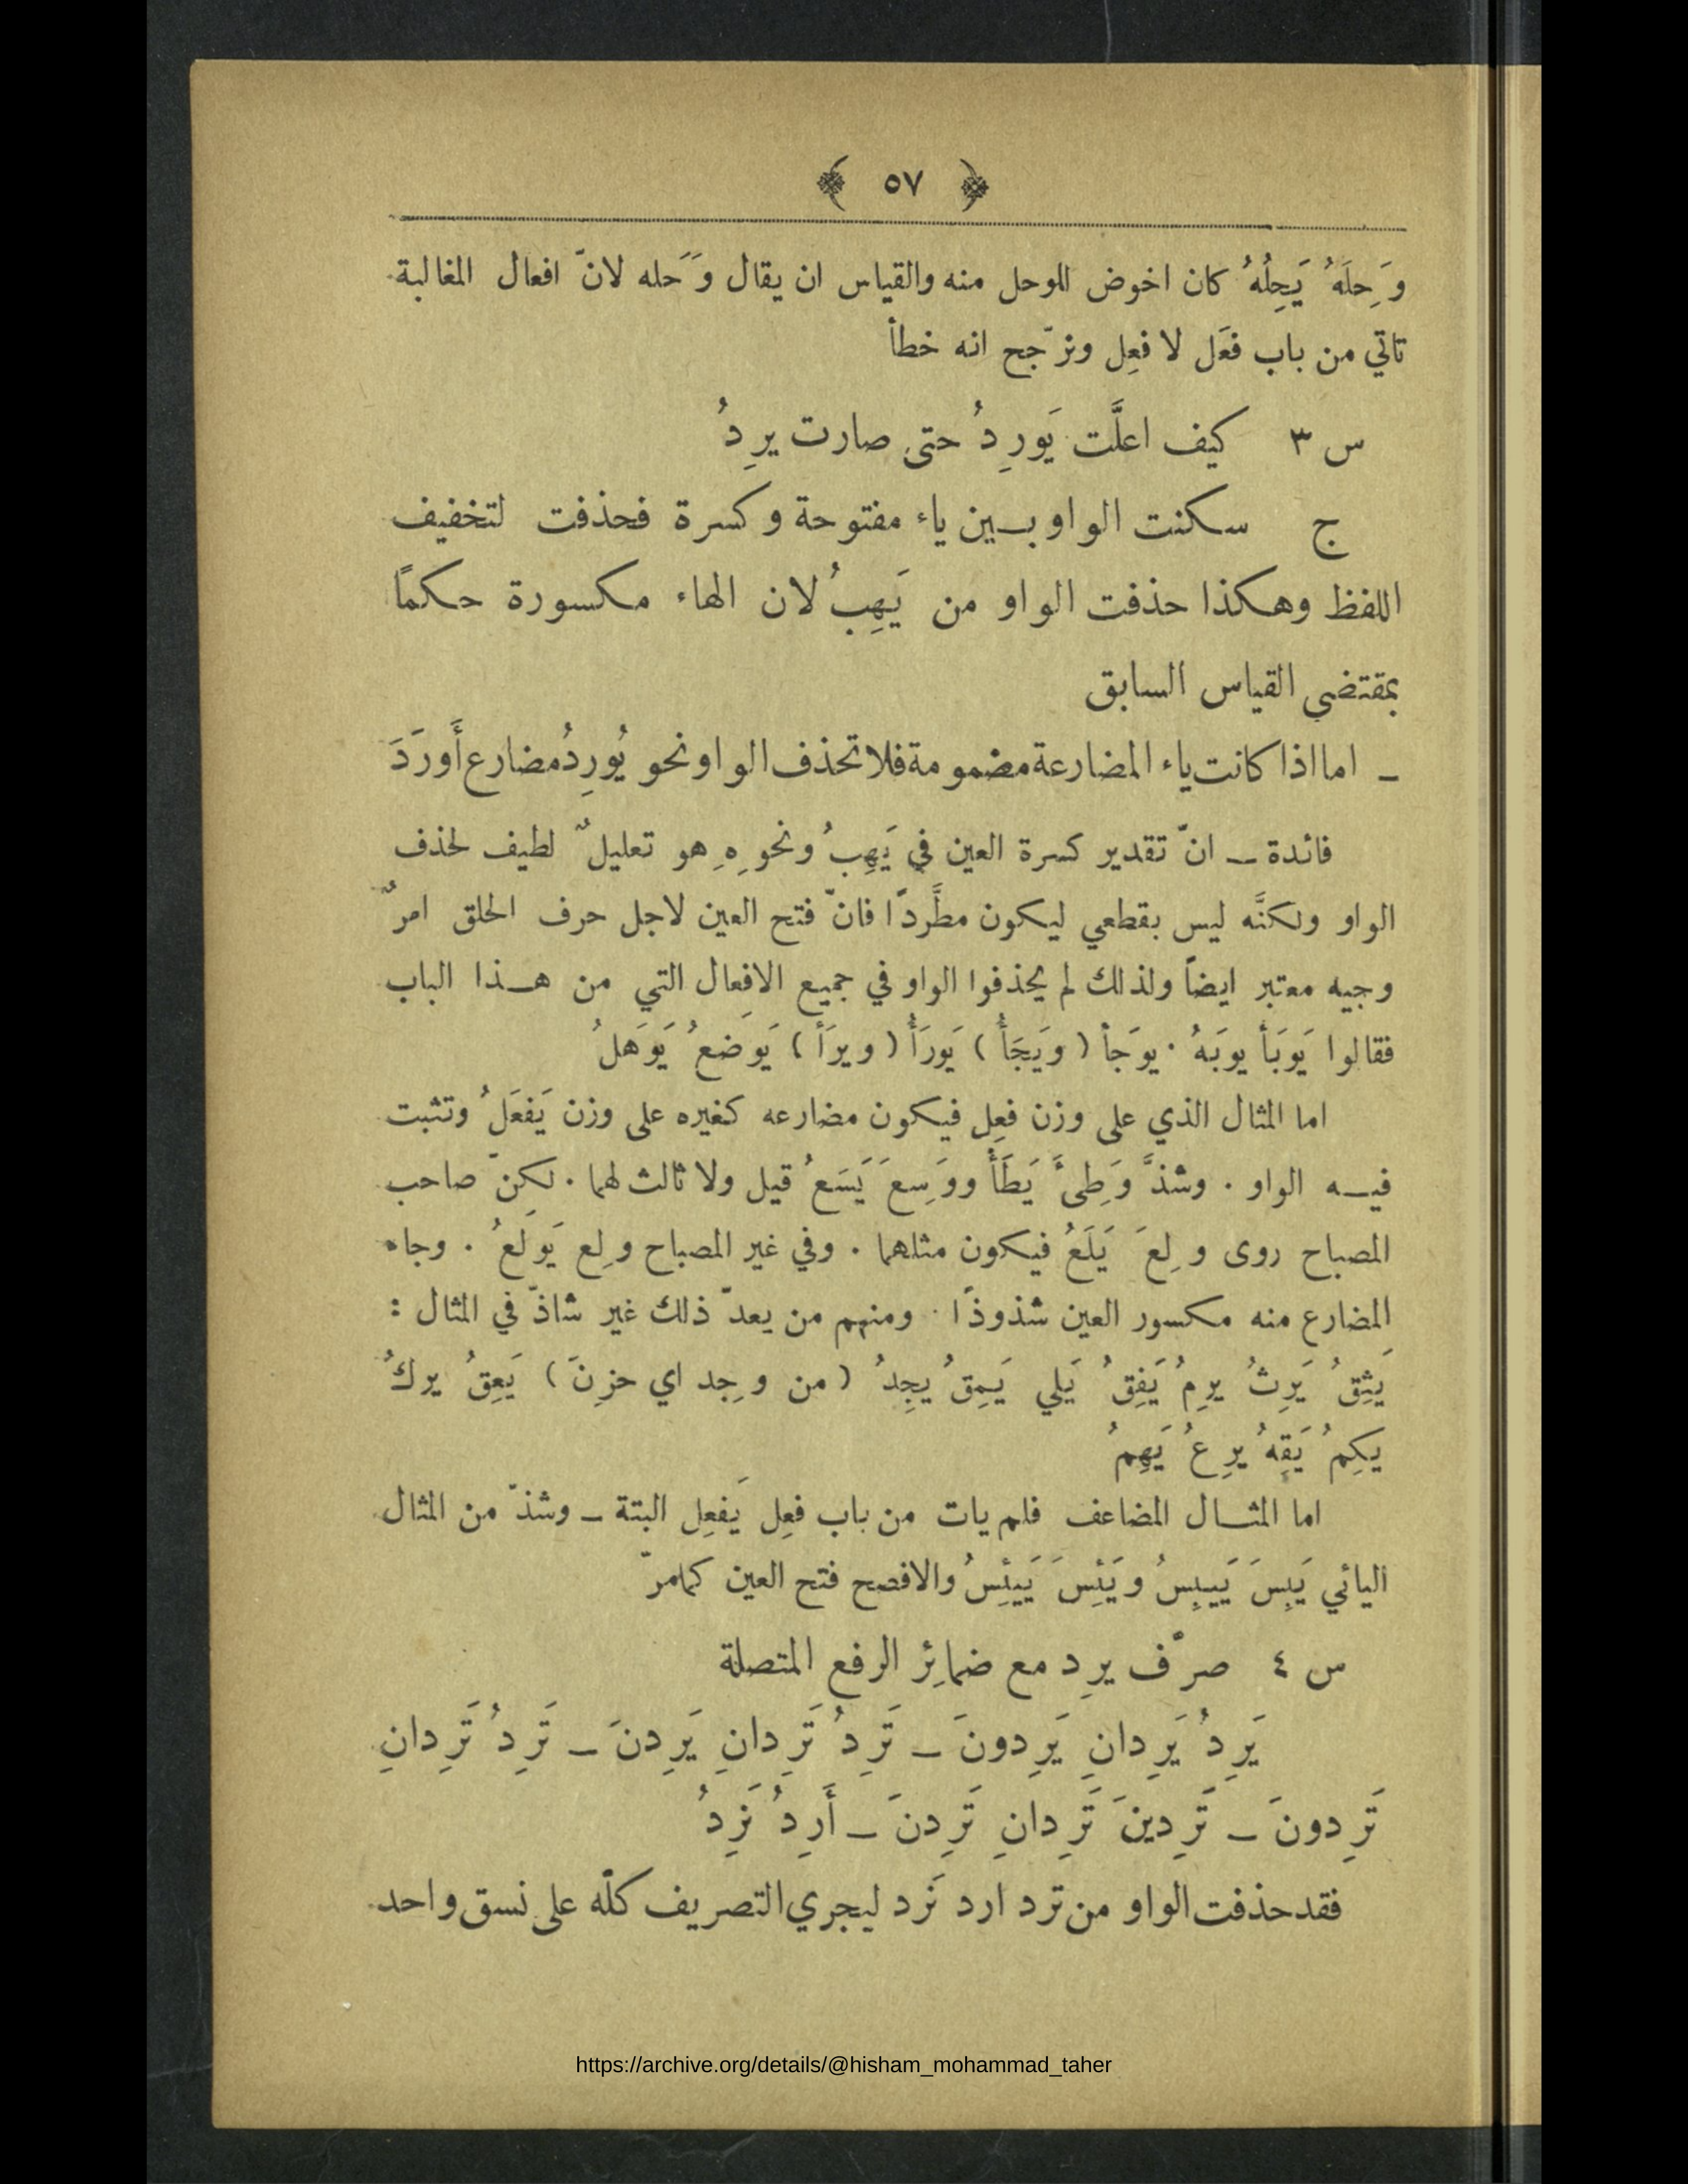 ﴿ ٥٧ ﴾
وَحِلَهُ يَحِلُهُ كان اخوض للوحل منه والقياس ان يقال وَحَله لانّ افعال المغالبة
تاتي من باب فعَل لا فعِل ونرّجح انه خطأ
س ٣ كيف اعلَّت يَورِدُ حتى صارت يرِدُ
ج سكنت الواو بين ياء مفتوحة وكسرة فحذفت لتخفيف
اللفظ وهكذا حذفت الواو من يَهِبُ لان الهاء مكسورة حكمًا
بمقتضى القياس السابق
ـ اما اذا كانت ياء المضارعة مضمومة فلا تحذف الواو نحو يُورِدُ مضارع أَورَدَ
فائدة ـ انّ تقدير كسرة العين في يَهِبُ ونحوِهِ هو تعليلٌ لطيف لحذف
الواو ولكنَّه ليس بقطعي ليكون مطَّردًا فانّ فتح العين لاجل حرف الحلق امرٌ
وجيه معتبر ايضاً ولذلك لم يحذفوا الواو في جميع الافعال التي من هذا الباب
فقالوا يَوبَأ يوبَهُ . يوَجأ ( وَيَجَأُ ) يَورَأُ ( ويرَأ ) يَوضَعُ يَوَهَلُ
اما المثال الذي على وزن فعِل فيكون مضارعه كغيره على وزن يَفعَلُ وتثبت
فيه الواو . وشذَّ وَطِىَٔ يَطَأُ ووَسِعَ يَسَعُ قيل ولا ثالث لهما . لكنّ صاحب
المصباح روى ولِعَ يَلَعُ فيكون مثلهما . وفي غير المصباح ولِع يَولَعُ . وجاء
المضارع منه مكسور العين شذوذًا . ومنهم من يعدّ ذلك غير شاذّ في المثال :
يَثِقُ يَرِثُ يرِمُ يَفِقُ يَلي يَمِقُ يجِدُ ( من وجِد اي حزِنَ ) يَعِقُ يركُ
يكِمُ يَقِهُ يرِعُ يَهِمُ
اما المثال المضاعف فلم يات من باب فعِل يَفعِل البتة ـ وشذّ من المثال
اليائي يَبِسَ يَيبِسُ ويَئِسَ يَيئِسُ والافصح فتح العين كمامرّ
س ٤ صرّف يرِد مع ضمائِر الرفع المتصلة
يَرِدُ يَرِدانِ يَرِدونَ ـ تَرِدُ تَرِدانِ يَرِدنَ ـ تَرِدُ تَرِدانِ
تَرِدونَ ـ تَرِدينَ تَرِدانِ تَرِدنَ ـ أَرِدُ نَرِدُ
فقد حذفت الواو من ترد ارد نَرد ليجري التصريف كلّه على نسق واحد
https://archive.org/details/@hisham_mohammad_taher